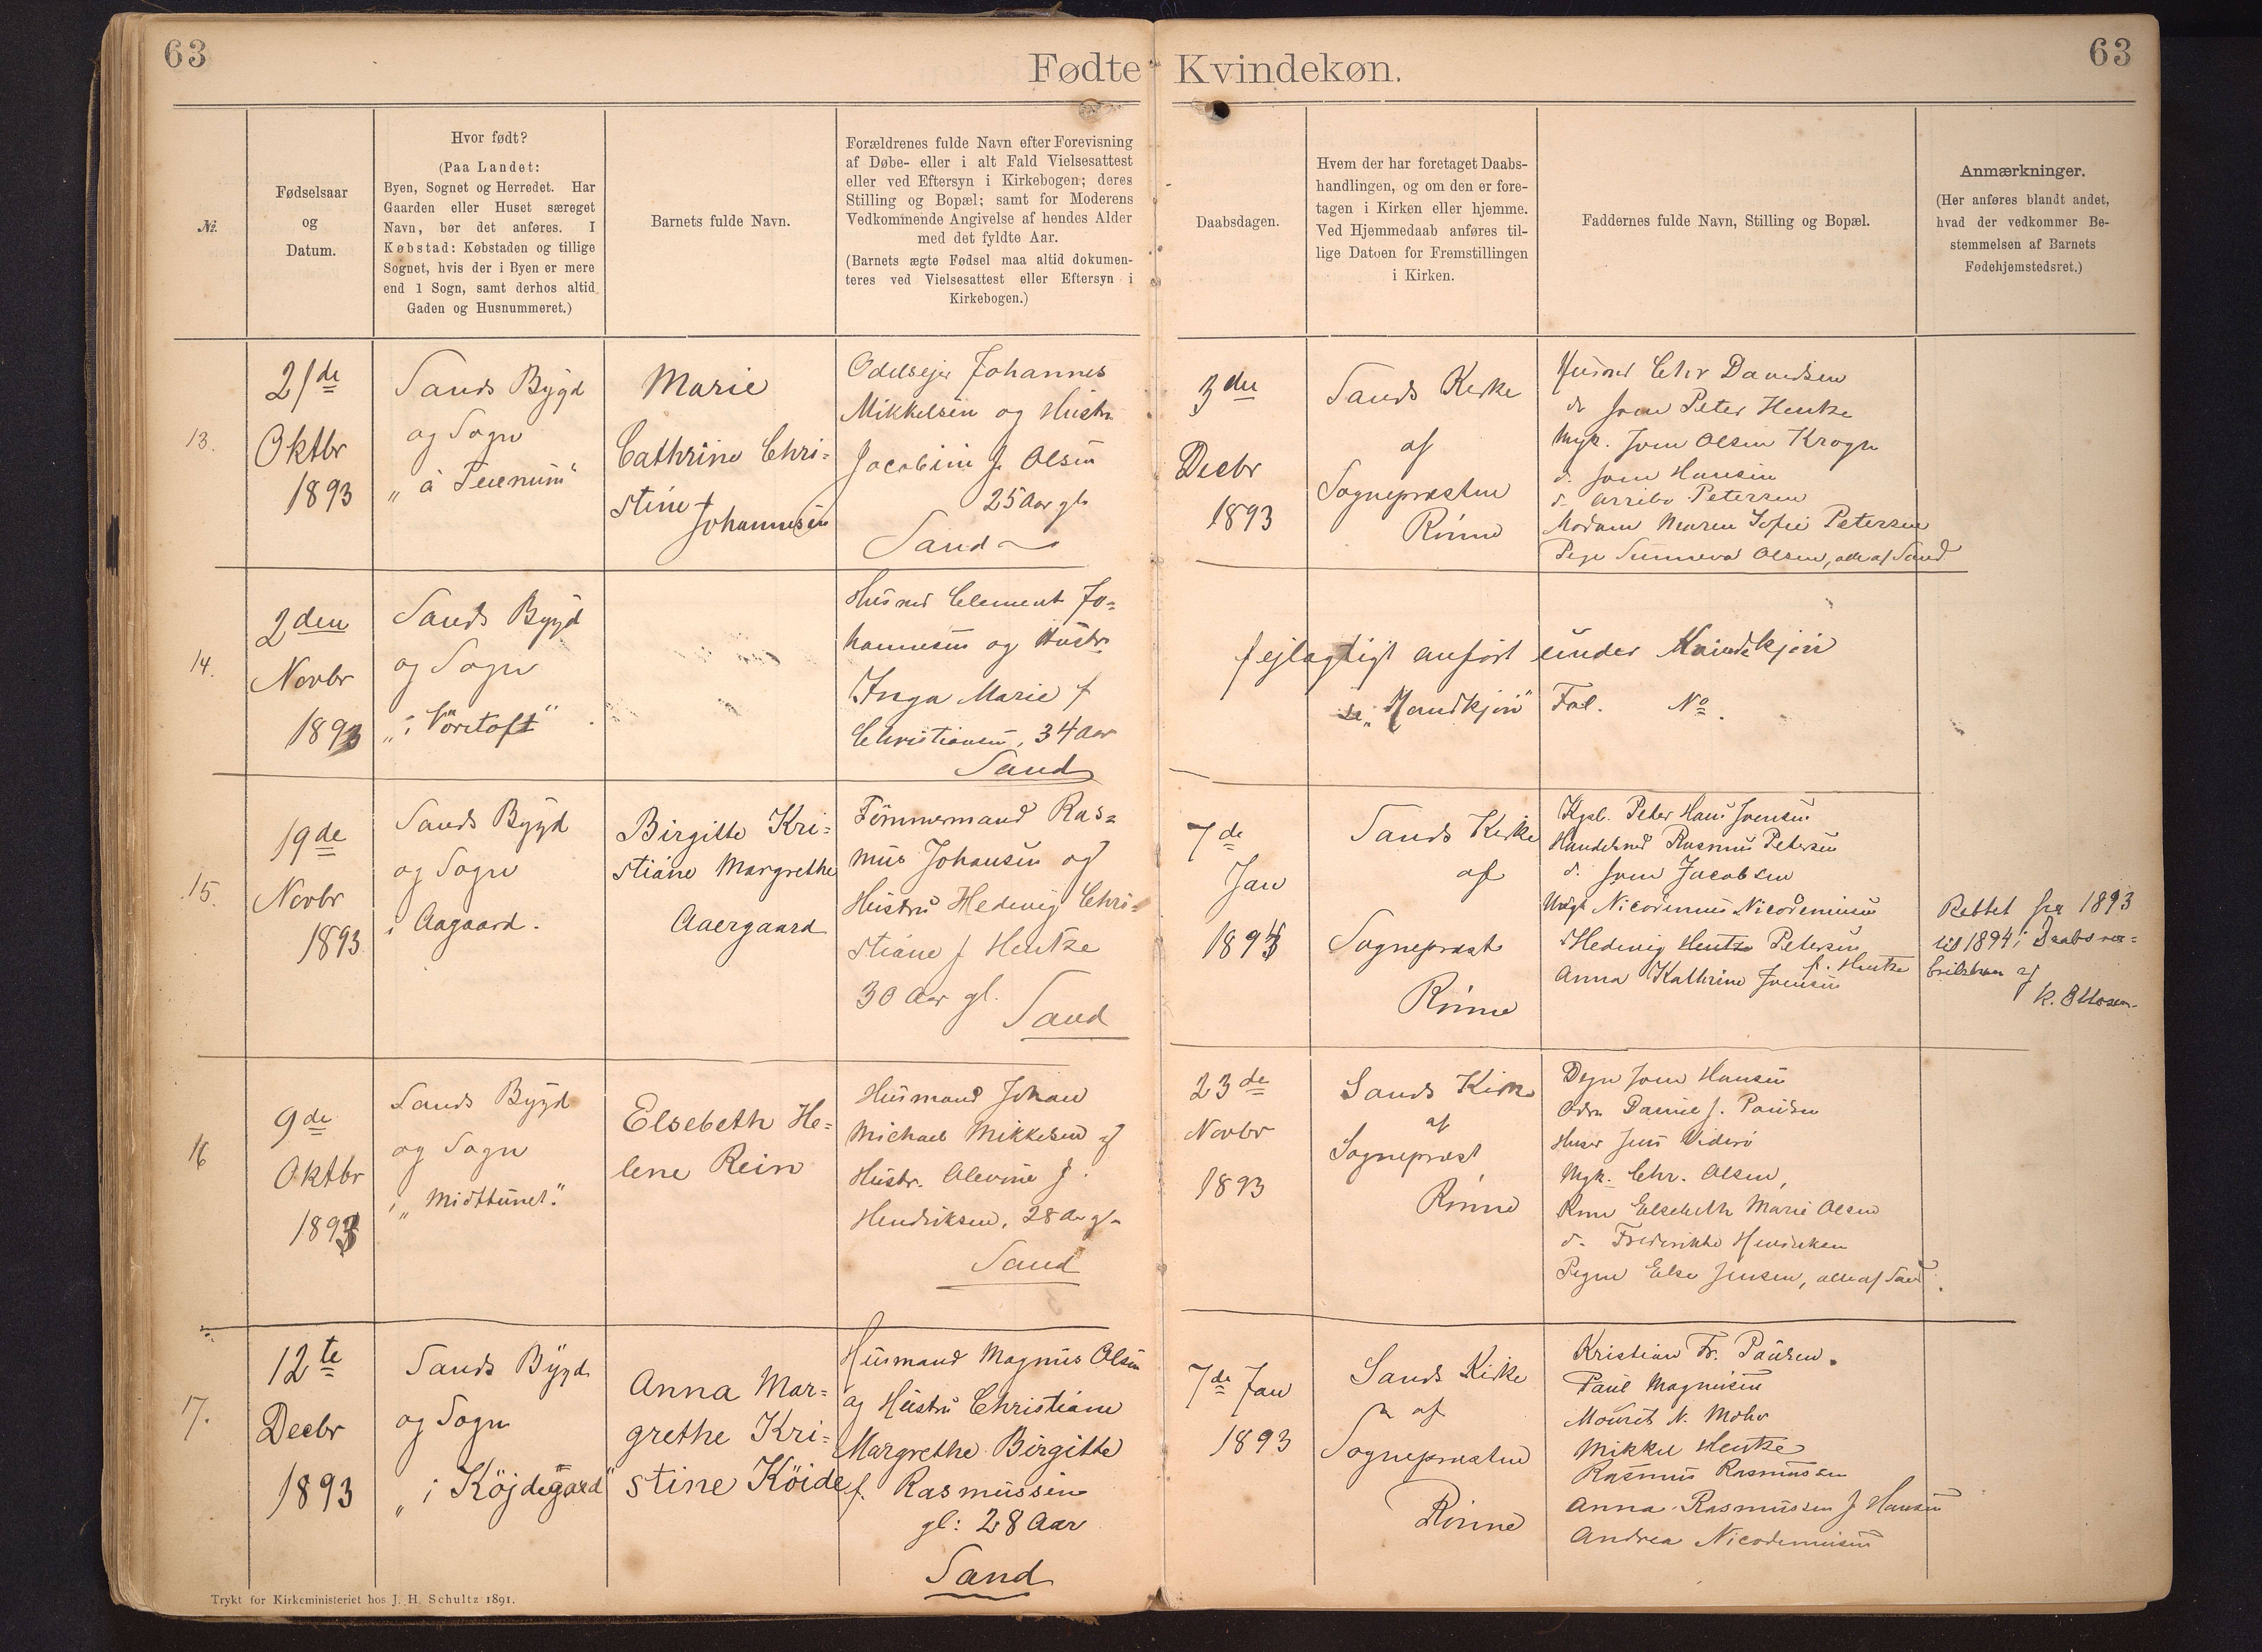 63
63
Fødte Kvindekøn.
№
Fødselsaar
og
Datum.
Hvor født?
(Paa Landet:
Byen, Sognet og Herredet. Har
Gaarden eller Huset særeget
Navn, bør det anføres. I
Købstad: Købstaden og tillige
Sognet, hvis der i Byen er mere
end 1 Sogn, samt derhos altid
Gaden og Husnummeret.)
Barnets fulde Navn.
Forældrenes fulde Navn efter Forevisning
af Døbe- eller i alt Fald Vielsesattest
eller ved Eftersyn i Kirkebogen; deres
Stilling og Bopæl; samt for Moderens
Vedkommende Angivelse af hendes Alder
med det fyldte Aar.
(Barnets ægte Fødsel maa altid dokumen-
teres ved Vielsesattest eller Eftersyn i
Kirkebogen.)
Daabsdagen.
Hvem der har foretaget Daabs-
handlingen, og om den er fore-
tagen i Kirken eller hjemme.
Ved Hjemmedaab anføres til-
lige Datoen for Fremstillingen
i Kirken.
Faddernes fulde Navn, Stilling og Bopæl.
Anmærkninger.
(Her anføres blandt andet,
hvad der vedkommer Be-
stemmelsen af Barnets
Fødehjemstedsret.)
13.
21de
Oktbr
1893
Sands Bygd
og Sogn
Marie
Cathrine Chri=
stine
Johannesen
Odelsejer Johannes
Mikkelsen og Hustr.
Jacobine f. Olsen
25 Aar gl.
Sand
3die
Decbr
1893
Sands Kirke
af
Sognepræsten
Rönne
Husmd Chr Davidsen
do Joen Peter Hentze
Ungk. Joen Olsen Krogh
d. Joen Hansen
d. Arribo Petersen
Madam Maren Sofie Petersen
Pige Sunneva Olsen, alle af Sand
14.
2den
Novbr
1893
Sands Bygd
og Sogn
Husmd Clement Jo=
hannesen og Hustr.
Inga Marie f
Christiansen, 34 Aar
Sand
fejlagtigt anført under Kvindekjøn
se „Mandkjøn" Fol. No.
15.
19de
Novbr
1893
Sands Bygd
og Sogn
i Aagaard.
Birgitte Kri=
stiane Margrethe
Aaergaard
Tømmermand Ras=
mus Johansen og
Hustru Hedevig Chri=
stiane f Hentze
30 Aar gl.
Sand
7de
Jan
1894
Sands Kirke
af
Sognepræst
Rönne
Peter Hans Joensen
Handelsmd Rasmus Petersen
d. Joen Jacobsen
Ungk Nicodemus Nicodemusen
Hedevig Hentze Petersen
f. Hentze
Anna Kathrine Joensen
Rettet fra 1893
til 1894 i Daabs
af
16
9de
Oktbr
1893
Sands Bygd
og Sogn
i „Midttunet."
Elsebeth He=
lene Rein
Husmand Johan
Michael Mikkelsen og
Hustr. Olevine f.
Hendriksen, 28 Aar gl.
Sand
23de
Novbr
1893
Sands Kirke
af
Sognepræst
Rönne
Degn Joen Hansen
Daniel J. Poulsen
Jens Viderö
Ungk. Chr. Olsen,
Kone Elsebeth Marie Olsen
d. Frederikke Hendriksen
Pigen Else Jensen, alle af Sand.
17.
12te
Decbr
1893
Sands Bygd
og Sogn
„i Köjdegaard"
Anna Mar=
grethe Kri=
stine Köide
Husmand Magnus Olsen
og Hustru Christiane
Margrethe Birgitte
f. Rasmussen
gl: 28 Aar
Sand
7de Jan
1893
Sands Kirke
af
Sognepræsten
Rönne
Kristian Fr. Paulsen.
Paul Magnusen
Mourits N. Mohr
Mikkel Hentze
Rasmus Rasmussen
Anna Rasmussen f Hansen
Andrea Nicodemusen
Trykt for Kirkeministeriet hos J. H. Schultz 1891.